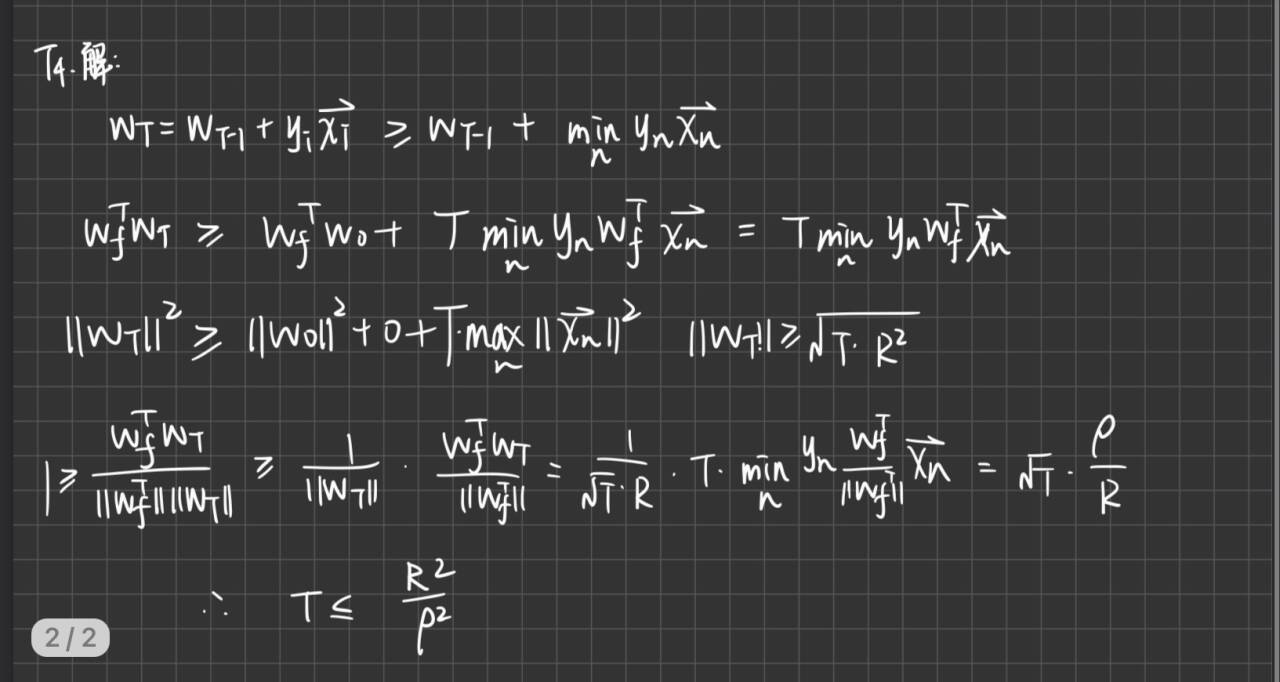 T4.解:
w_T = w_{T-1} + y_i \vec{x_i} ≥ w_{T-1} + min_n y_n \vec{x_n}
w_f^T w_T ≥ w_f^T w_0 + T min_n y_n w_f^T \vec{x_n} = T min_n y_n w_f^T \vec{x_n}
||w_T||^2 ≥ ||w_0||^2 + 0 + T·max_n ||\vec{x_n}||^2 ||w_T|| ≥ √(T·R^2)
1 ≥ \frac{w_f^T w_T}{||w_f^T|| ||w_T||} ≥ \frac{1}{||w_T||} · \frac{w_f^T w_T}{||w_f^T||} = \frac{1}{√T·R} · T· min_n y_n \frac{w_f^T}{||w_f^T||} \vec{x_n} = √T · \frac{ρ}{R}
∴ T ≤ \frac{R^2}{ρ^2}
2 / 2